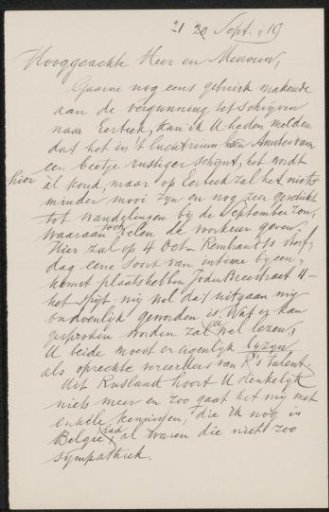 21 20 Sept. '19
Hooggeachte Heer en Mevrouw,
Gaarne nog eens gebruik makende
aan de vergunning tot schrijven
naar Eerbeek, kan ik U heden melden
dat het in 't luchtruim van Amsterdam
een beetje rustiger schijnt, het wordt
hier al koud, maar op Eerbeek zal het niets
minder mooi zyn en nog zeer geschikt
tot wandelingen bij de September zon,
waaraan toch velen de voorkeur geven.
Hier zal op 4 Oct. Rembrandts sterf-
dag eene soort van intieme byeen-
komst plaats hebben JodenBreestraat 4-
het spijt mij wel dat uitgaan mij
ondoenlyk geworden is. Wat er kan
gesproken worden zal wel lezen,
U beide moest er eigenlyk byzyn
als oprechte vereerders van R's talent
Uit Rusland hoort U denkelyk
niets meer en zoo gaat het mij met
enkele kennissen, die ik nog in
België had, al waren die niet zoo
sympathiek.